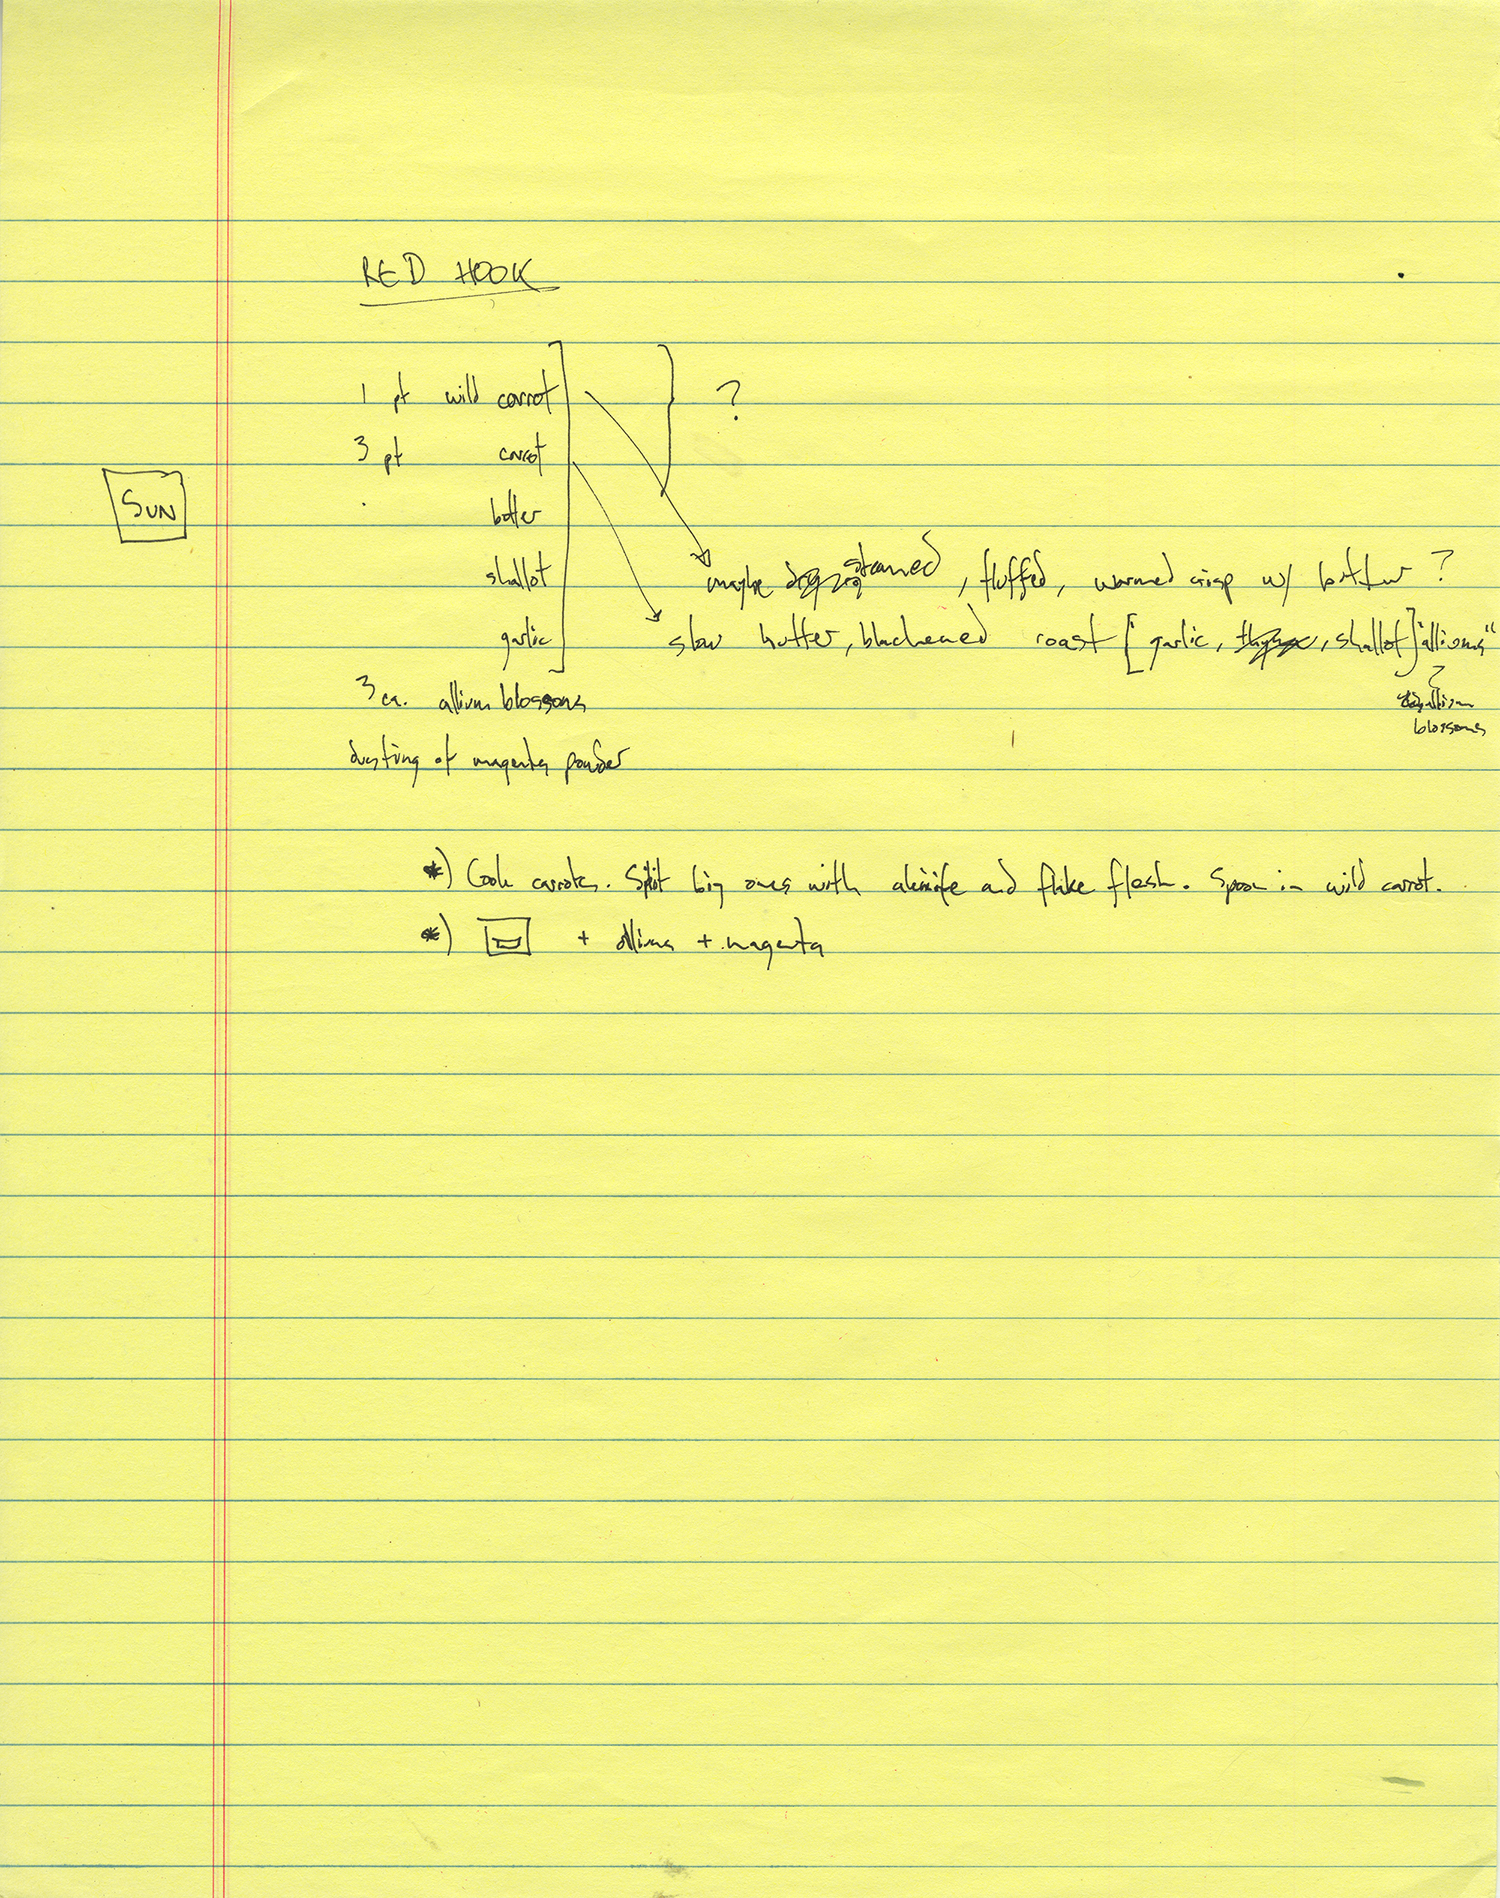 RED HOOK
1 pt wild carrot ?
3 pt carrot
SUN
butter
shallot
maybe steamed, fluffed, warmed crisp w/ butter ?
garlic
slow butter, blackened roast [garlic, thyme, shallot] "alliums"
3 ea. allium blossoms
? allium
blossoms
dusting of magenta powder
*) Cook carrots. Split big ones with a knife and flake flesh. Spoon in wild carrot.
*) + alliums + magenta